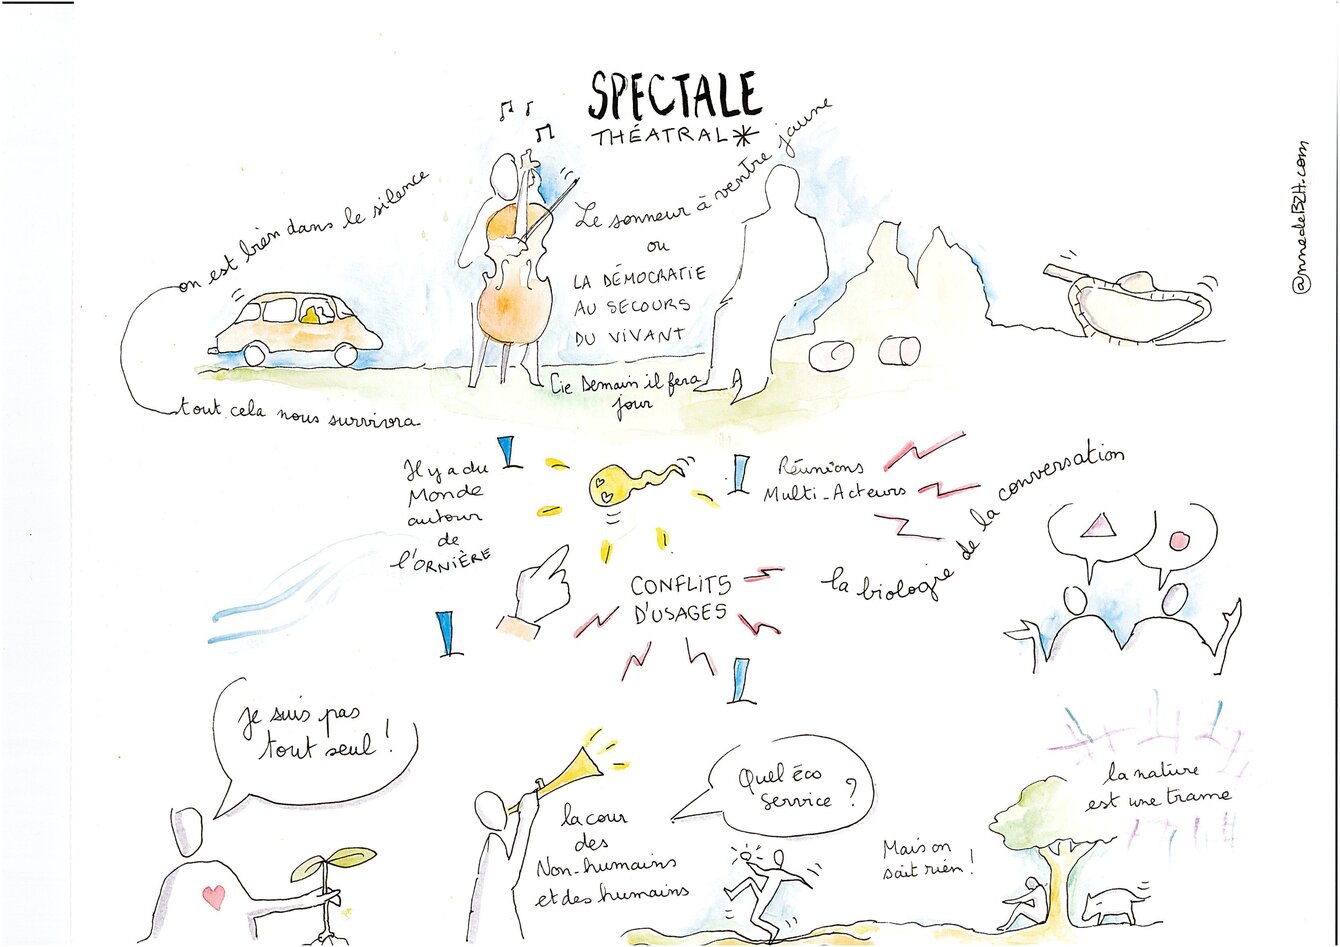 SPECTALE
THÉATRAL*
on est bien dans le silence
tout cela nous survivra
Le sonneur à ventre jaune
ou
LA DÉMOCRATIE
AU SECOURS
DU VIVANT
Cie Demain il fera
jour
@nnedeBZH.com
Il y a du
Monde
autour
de
l'ORNIÈRE
Réunions
Multi-Acteurs
la biologie de la conversation
CONFLITS
D'USAGES
Je suis pas
tout seul !
la cour
des
Non-humains
et des humains
Quel éco
service ?
Mais on
sait rien !
la nature
est une trame